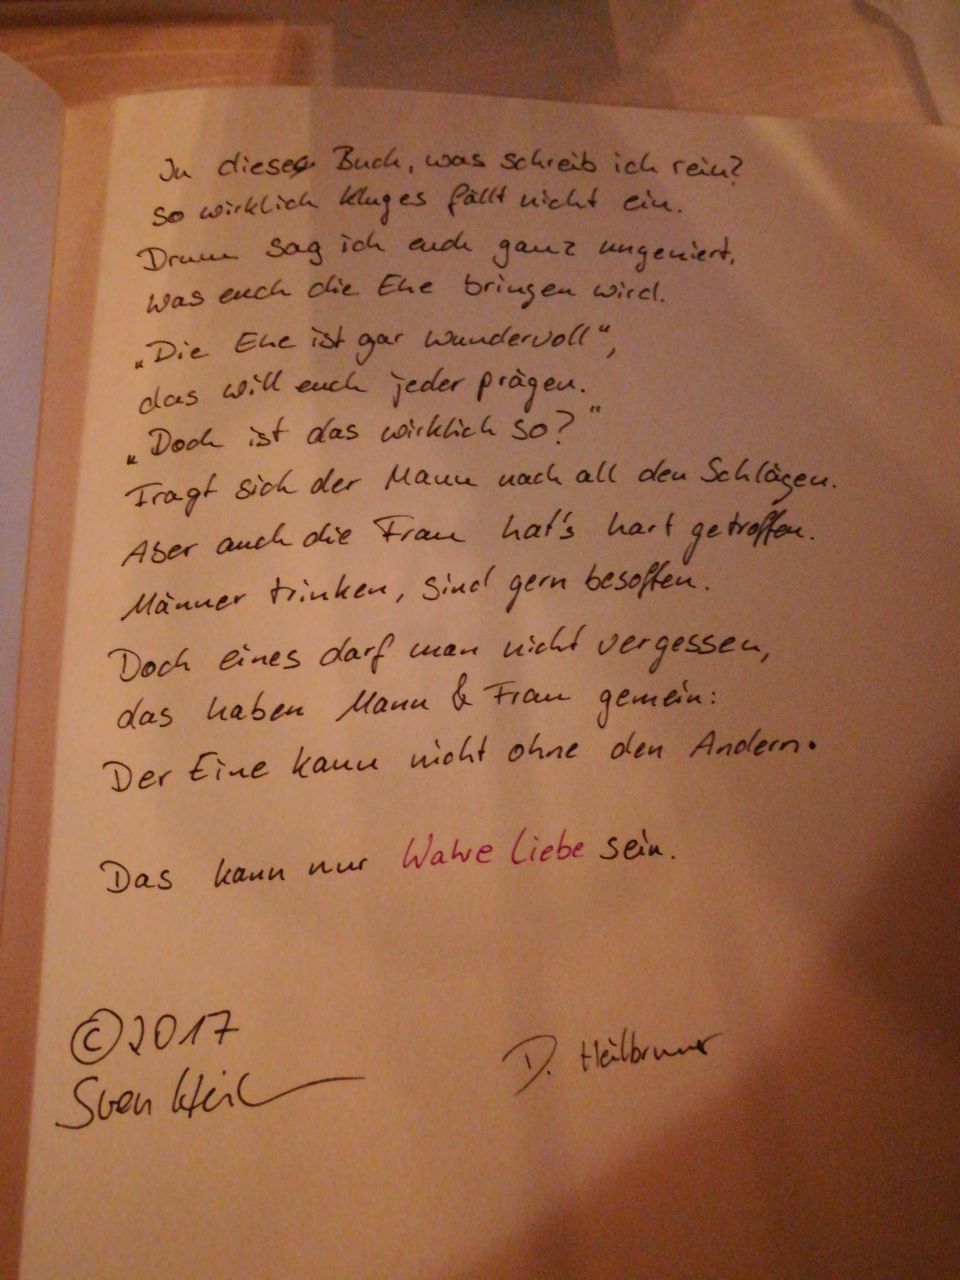 In dieses Buch, was schreib ich rein?
so wirklich kluges fällt nicht ein.
Drum sag ich euch ganz ungeniert,
was euch die Ehe bringen wird.
„Die Ehe ist gar wundervoll“,
das will euch jeder prägen.
„Doch ist das wirklich so?“
Fragt sich der Mann nach all den Schlägen.
Aber auch die Frau hat's hart getroffen.
Männer trinken, sind gern besoffen.
Doch eines darf man nicht vergessen,
das haben Mann & Frau gemein:
Der Eine kann nicht ohne den Andern.
Das kann nur Wahre Liebe sein.
©2017
Sven
D. Heilbrunner